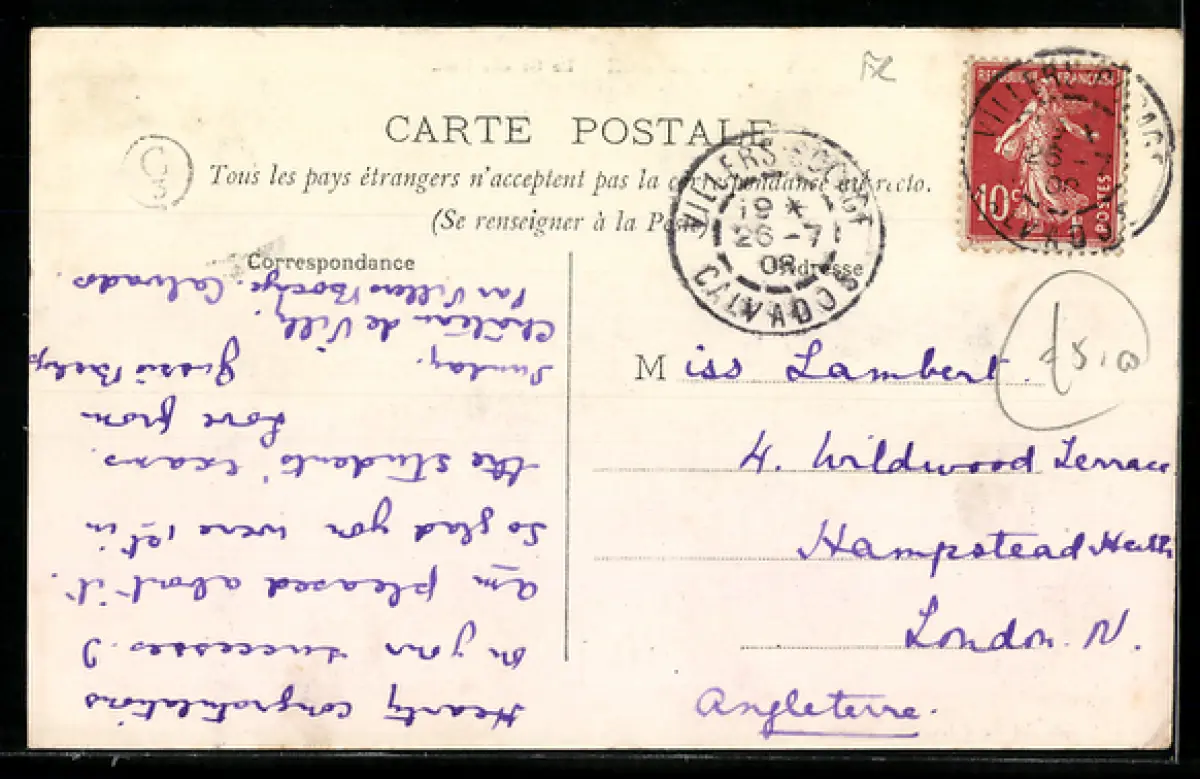 CARTE POSTALE
Tous les pays étrangers n'acceptent pas la correspondance au recto.
(Se renseigner à la Poste)
Correspondance
Adresse
REPUBLIQUE FRANÇAISE
10c
POSTES
VILLERS-BOCAGE
19 *
26 - 7
08
CALVADOS
VILLERS-BOCAGE
CALVADOS
Miss Lambert.
4. Wildwood Terrace
Hampstead Heath
London. N.
Angleterre.
Hearty congratulations
on your successes. I
am pleased about it.
So glad you were 1st in
the students' exams.
Love from
Sunday.
Château de Villy.
Par Villers Bocage. Calvados.